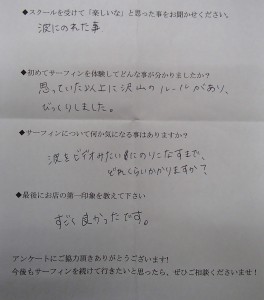 ◆スクールを受けて「楽しいな」と思った事をお聞かせください。
波にのれた事
◆初めてサーフィンを体験してどんな事が分かりましたか?
思っていた以上に沢山のルールがあり、
びっくりしました。
◆サーフィンについて何か気になる事はありますか?
波をビデオみたいにのりこなすまで、
どれくらいかかりますか?
◆最後にお店の第一印象を教えて下さい
すごく良かったです。
アンケートにご協力頂きありがとうございます!
今後もサーフィンを続けて行きたいと思ったら、ぜひご相談くださいませ!